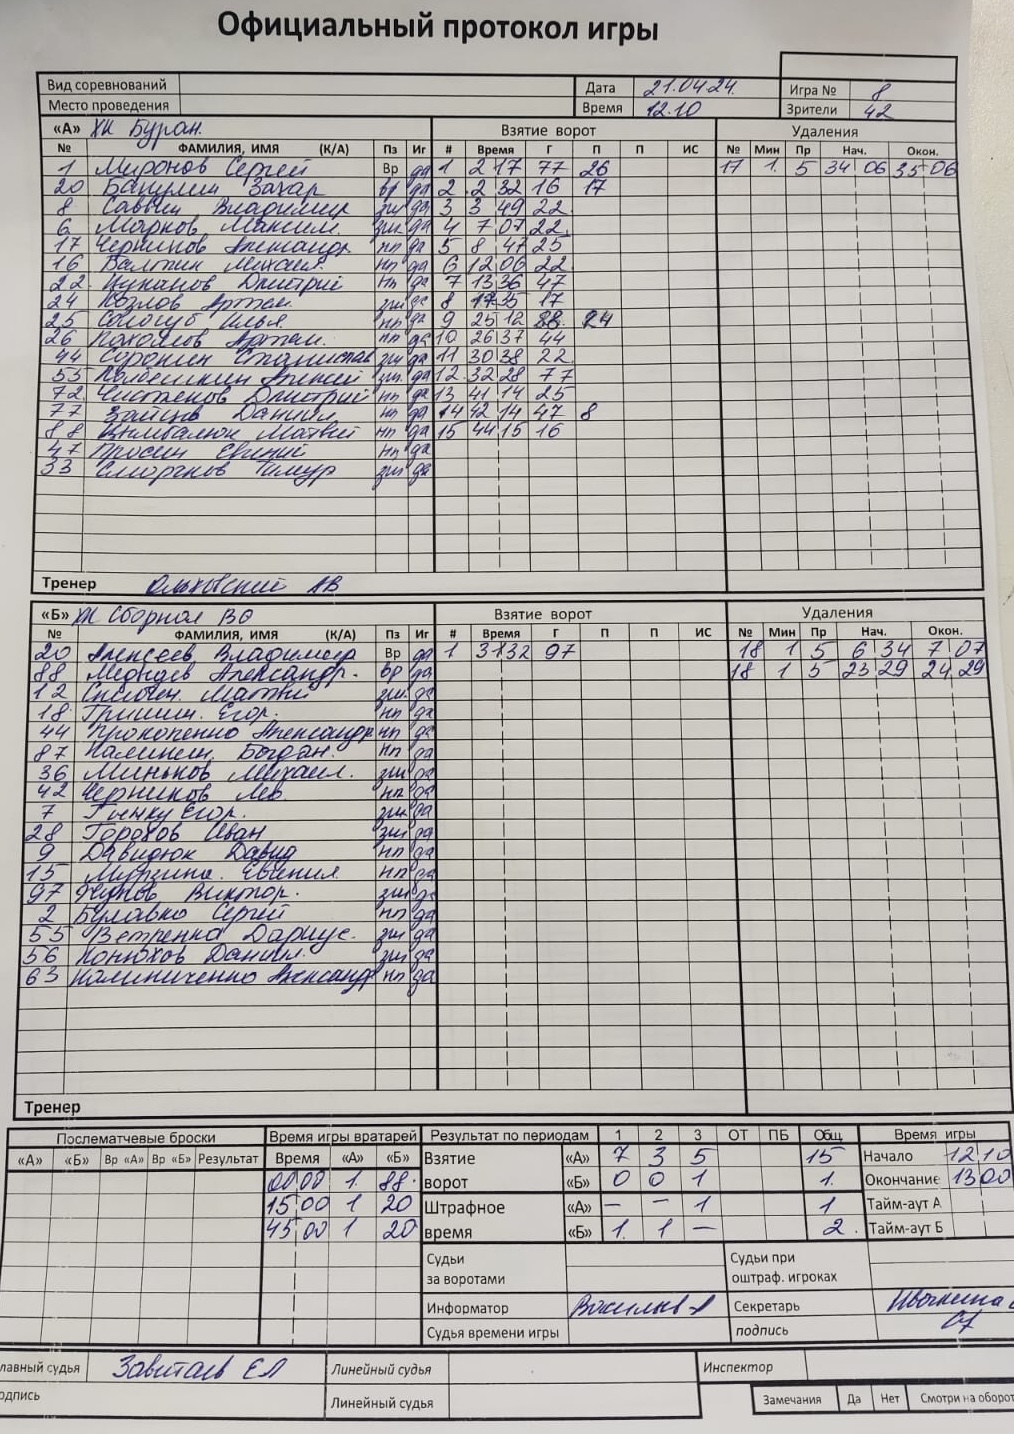 Официальный протокол игры
Вид соревнований Дата 21.04.24 Игра № 8
Место проведения Время 12.10 Зрители 42
«А» ХК Буран. Взятие ворот Удаления
№ ФАМИЛИЯ, ИМЯ (К/А) Пз Иг # Время Г П П ИС № Мин Пр Нач. Окон.
1 Миронов Сергей Вр да 1 2 17 77 26 17 1. 5 34 06 35 06
20 Захар вр да 2 2 32 16 17
8 Саввин Владимир зщ да 3 3 49 22
6 Марков Максим. зщ да 4 7 07 22
17 Черников Александр нп да 5 8 47 25
16 Валтин Михаил. нп да 6 12 06 22
22 Дмитрий нп да 7 13 36 47
24 Козлов Артем. зщ да 8 17 35 17
25 Сологуб Илья. нп да 9 25 12 88 24
26 Артем. нп да 10 26 37 44
44 Сорокин Станислав зщ да 11 30 38 22
55 Алексей зщ. да 12 32 28 77
72 Чистяков Дмитрий нп да 13 41 14 25
77 Зайцев Даниил нп да 14 42 14 47 8
88 Цымбалюк Матвей нп да 15 44 15 16
47 Просин Евгений нп да
33 Сморчков Тимур зщ да
Тренер Ольховский АВ
«Б» ХК Сборная ВО Взятие ворот Удаления
№ ФАМИЛИЯ, ИМЯ (К/А) Пз Иг # Время Г П П ИС № Мин Пр Нач. Окон.
20 Алексеев Владимир Вр да 1 31 32 97 18 1 5 6 34 7 07
88 Александр. вр да 18 1 5 23 29 24 29
12 зщ да
18 Гришин. Егор. нп да
44 Прокопенко Александр нп да
87 Калинин. Богдан. нп да
36 Миньков Михаил. зщ да
42 Черников Лев. нп да
7 Егор. зщ да
28 Горохов Иван зщ да
9 Давидюк Давид нп да
15 Мурзина. Евгения нп да
97 Виктор. зщ да
2 Булавко Сергей нп да
55 Ветренко Дариус. зщ да
56 Конюхов Даниил. зщ да
63 Калиниченко Александр нп да
Тренер
Послематчевые броски Время игры вратарей Результат по периодам 1 2 3 ОТ ПБ Общ Время игры
«А» «Б» Вр «А» Вр «Б» Результат Время «А» «Б» Взятие «А» 7 3 5 15 Начало 12 10
00 00 1 88 ворот «Б» 0 0 1 1. Окончание 13 00
15 00 1 20 Штрафное «А» – – 1 1 Тайм-аут А
45 00 1 20 время «Б» 1 1 – 2. Тайм-аут Б
Судьи за воротами Судьи при оштраф. игроках
Информатор Секретарь
Судья времени игры подпись
лавный судья Завитаев ЕЛ Линейный судья Инспектор
одпись Линейный судья Замечания Да Нет Смотри на оборот